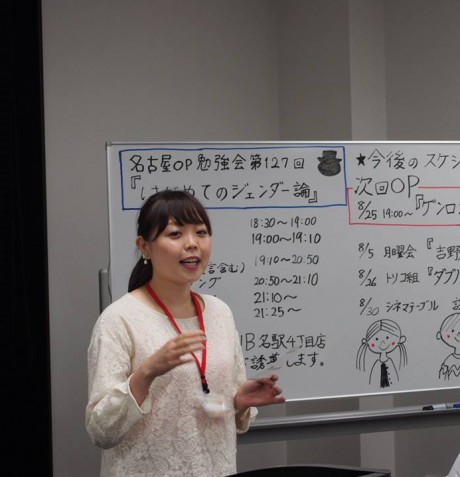 名古屋OP勉強会第127回
『はじめてのジェンダー論』
18:30〜19:00
19:00〜19:10
19:10〜20:50
含む)
20:50〜21:10
ング
21:10〜
21:25〜
B 名駅4丁目店
します。
★今後のスケジ
次回OP
8/25 19:00〜『ゲンロン
8/5 月曜会『吉野
8/26 トリコ組『ダブル
8/30 シネマテーブル